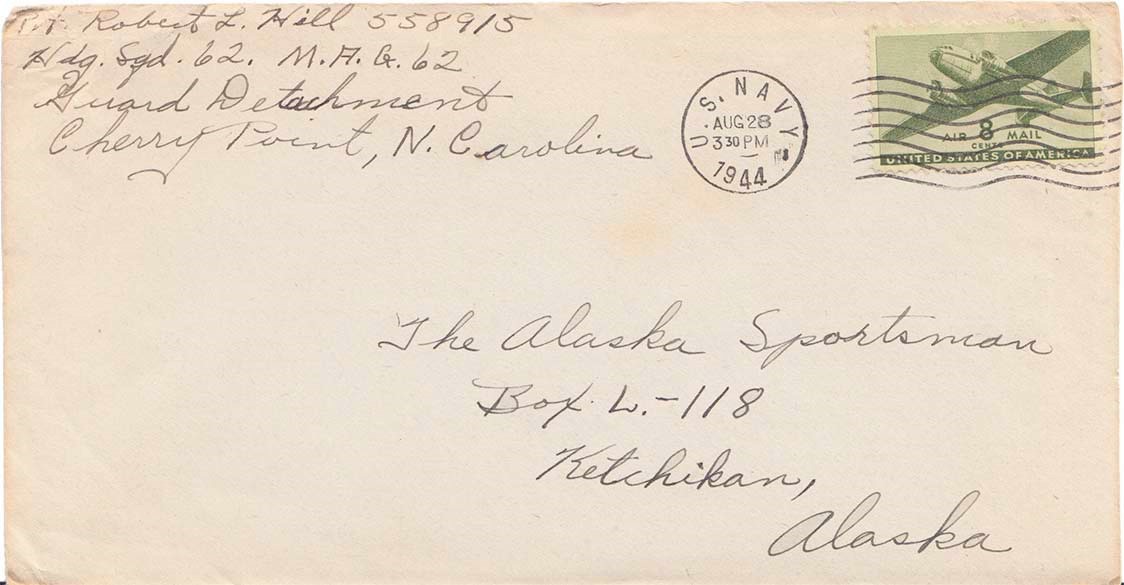 Pvt. Robert L. Hill 558915
Hdq. Sqd. 62. M.A.G. 62
Guard Detachment
Cherry Point, N. Carolina
U.S. NAVY
AUG 28
3 30 PM
1944
AIR 8 MAIL
CENTS
UNITED STATES OF AMERICA
The Alaska Sportsman
Box L.-118
Ketchikan,
Alaska